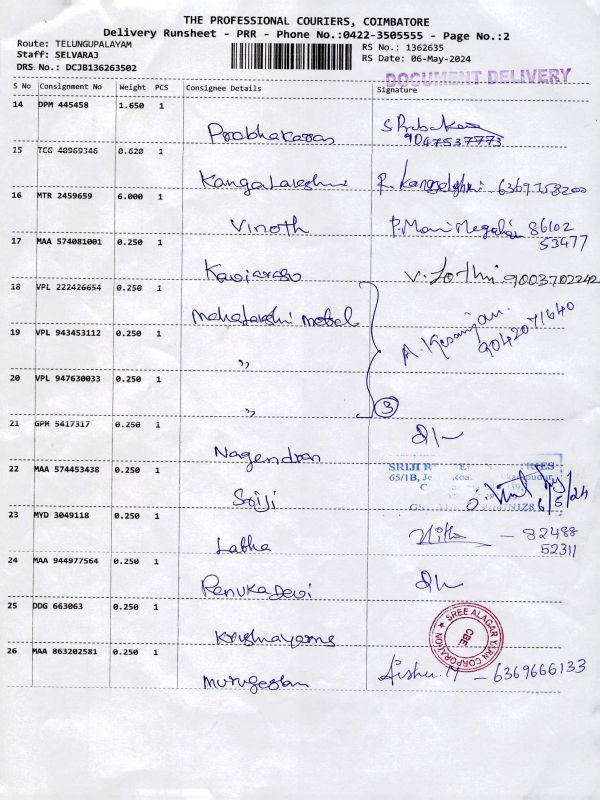 THE PROFESSIONAL COURIERS, COIMBATORE
Delivery Runsheet - PRR - Phone No.:0422-3505555 - Page No.:2
Route: TELUNGUPALAYAM
Staff: SELVARAJ
DRS No.: DCJB136263502
RS No.: 1362635
RS Date: 06-May-2024
DOCUMENT DELIVERY
S No Consignment No Weight PCS Consignee Details Signature
14 DPM 445458 1.650 1
Prabhakaran
9047537773
15 TCG 40969346 0.620 1
16 MTR 2459659 6.000 1
Vinoth P. Mani Megalai 86102
53477
17 MAA 574081001 0.250 1
Kaviarasu V. Jothi 9003702242
18 VPL 222426654 0.250 1
Mahalakshmi Metal
19 VPL 943453112 0.250 1
"
9042071640
20 VPL 947630033 0.250 1
"
3
21 GPM 5417317 0.250 1
Nagendran
22 MAA 574453438 0.250 1
SRIJI
65/1B,
Sriji
6/5/24
23 MYD 3049118 0.250 1
Latha
82488
52311
24 MAA 944977564 0.250 1
Renuka Devi
25 DDG 663063 0.250 1
Krishnayarns
SREE ALAGAR YARN CORPORATION
CBE
26 MAA 863202581 0.250 1
Murugesan Aishu. M - 6369666133